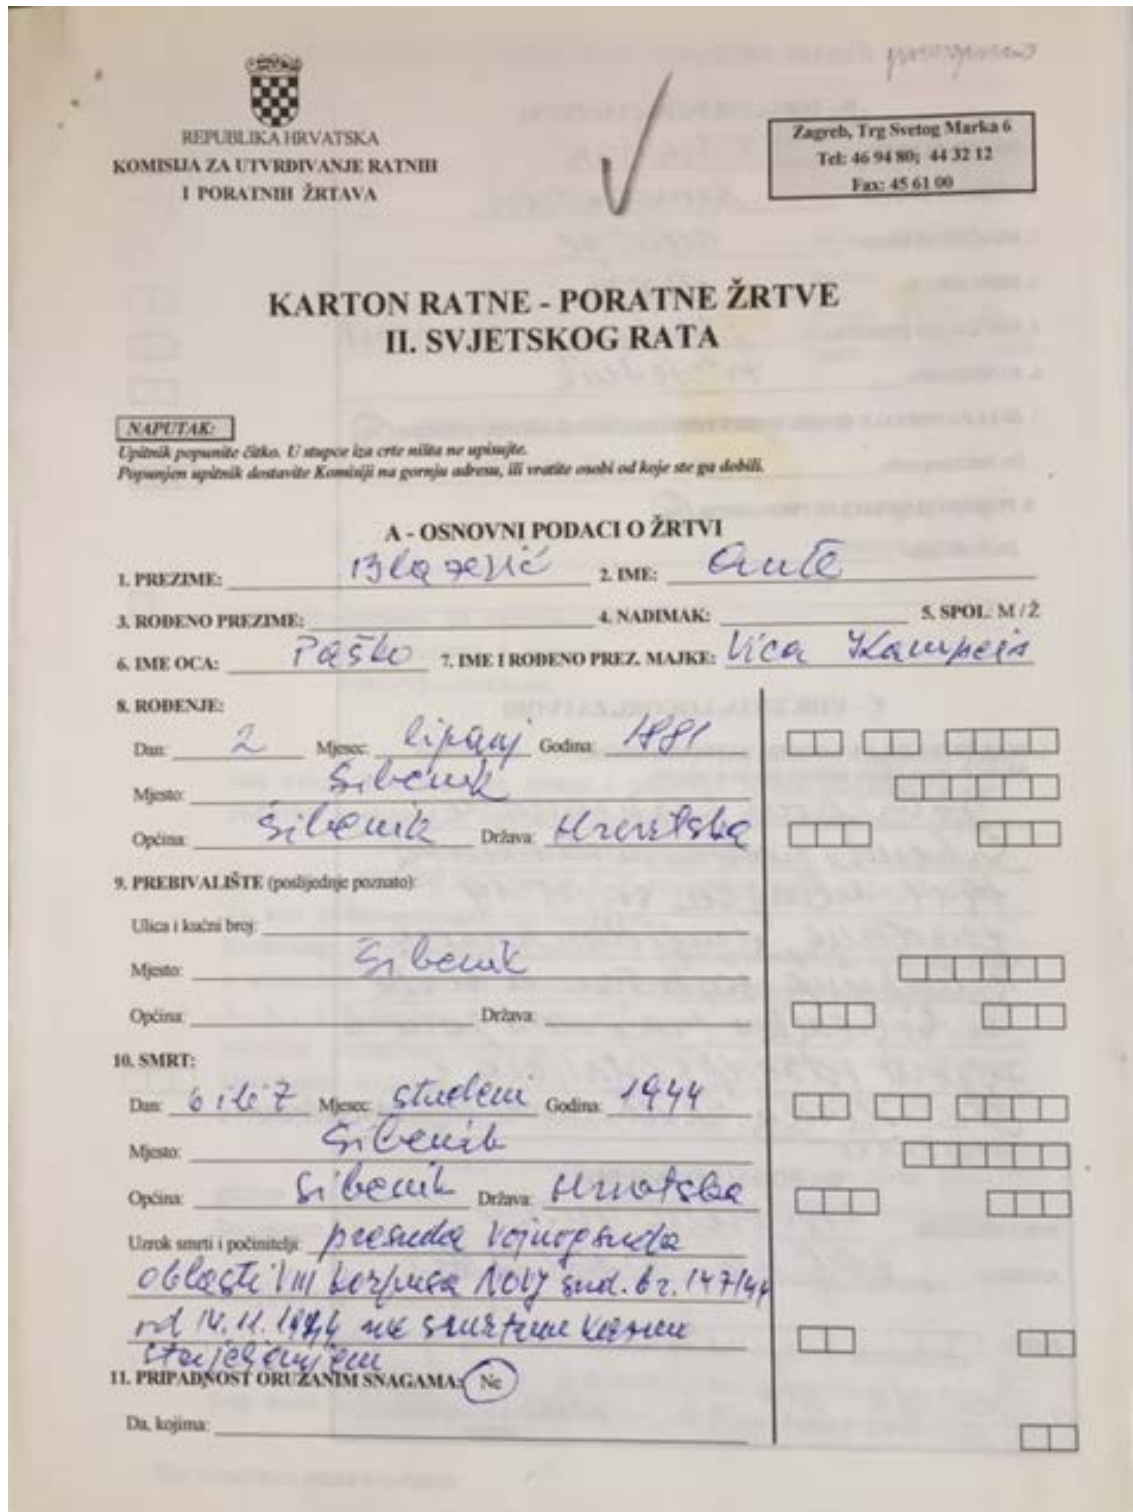 REPUBLIKA HRVATSKA
KOMISIJA ZA UTVRĐIVANJE RATNIH
I PORATNIH ŽRTAVA
Zagreb, Trg Svetog Marka 6
Tel: 46 94 80; 44 32 12
Fax: 45 61 00
KARTON RATNE - PORATNE ŽRTVE
II. SVJETSKOG RATA
NAPUTAK:
Upitnik popunite čitko. U stupce iza crte ništa ne upisujte.
Popunjen upitnik dostavite Komisiji na gornju adresu, ili vratite osobi od koje ste ga dobili.
A - OSNOVNI PODACI O ŽRTVI
1. PREZIME: Blažević 2. IME: Ante
3. ROĐENO PREZIME: 4. NADIMAK: 5. SPOL: M / Ž
6. IME OCA: Paško 7. IME I ROĐENO PREZ. MAJKE: Vica
8. ROĐENJE:
Dan: 2 Mjesec: lipanj Godina: 1881
Mjesto: Šibenik
Općina: Šibenik Država: Hrvatska
9. PREBIVALIŠTE (poslijednje poznato):
Ulica i kućni broj:
Mjesto: Šibenik
Općina: Država:
10. SMRT:
Dan: 6 ili 7 Mjesec: studeni Godina: 1944
Mjesto: Šibenik
Općina: Šibenik Država: Hrvatska
Uzrok smrti i počinitelji: presuda Vojnog suda
oblasti VIII korpusa NOVJ sud. br. 147/44
od 14.11.1944 na smrtnu kaznu
strjeljanjem
11. PRIPADNOST ORUŽANIM SNAGAMA: Ne
Da, kojima: